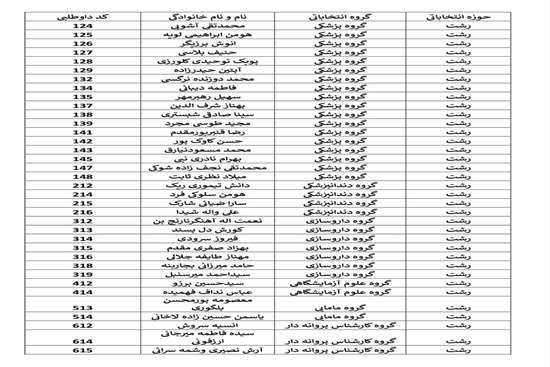 حوزه انتخاباتی گروه انتخاباتی نام و نام خانوادگی کد داوطلبی
رشت گروه پزشکی محمدتقی آشوبی 124
رشت گروه پزشکی هومن ابراهیمی لویه 125
رشت گروه پزشکی انوش برزیگر 126
رشت گروه پزشکی حنیف بلاسی 127
رشت گروه پزشکی پوپک توحیدی گلورزی 128
رشت گروه پزشکی آبتین حیدرزاده 129
رشت گروه پزشکی محمد دوزنده نرگسی 132
رشت گروه پزشکی فاطمه دیبائی 134
رشت گروه پزشکی سهیل رهبرمهر 135
رشت گروه پزشکی بهناز شرف الدین 137
رشت گروه پزشکی سینا صادقی شبستری 138
رشت گروه پزشکی مجید طوسی مجرد 139
رشت گروه پزشکی رضا قنبرپورمقدم 141
رشت گروه پزشکی حسن کاوک پور 142
رشت گروه پزشکی محمد مسعودنیارق 143
رشت گروه پزشکی بهرام نادری نبی 145
رشت گروه پزشکی محمدتقی نجف زاده شوکی 147
رشت گروه پزشکی میلاد نظری ثابت 148
رشت گروه دندانپزشکی دانش تیموری ریک 212
رشت گروه دندانپزشکی هومن سلوکی فرد 214
رشت گروه دندانپزشکی سارا ضیائی شارک 215
رشت گروه دندانپزشکی علی واله شیدا 216
رشت گروه داروسازی نعمت اله آهنگرنارنج بن 312
رشت گروه داروسازی کورش دل پسند 313
رشت گروه داروسازی فیروز سرودی 314
رشت گروه داروسازی بهزاد صفری مقدم 315
رشت گروه داروسازی مهناز طایفه جلالی 316
رشت گروه داروسازی حامد میرزائی بجارپنه 318
رشت گروه داروسازی سیداحمد میرسنبل 319
رشت گروه علوم آزمایشگاهی سیدحسین برزو 412
رشت گروه علوم آزمایشگاهی عباس نداف فهمیده 414
معصومه پورمحسن
رشت گروه مامایی بلکوری 513
رشت گروه مامایی یاسمن حسین زاده لاخانی 514
رشت گروه کارشناس پروانه دار انسیه سروش 612
سیده فاطمه میرجانی
رشت گروه کارشناس پروانه دار ارزفونی 614
رشت گروه کارشناس پروانه دار آرش نصیری وشمه سرائی 615